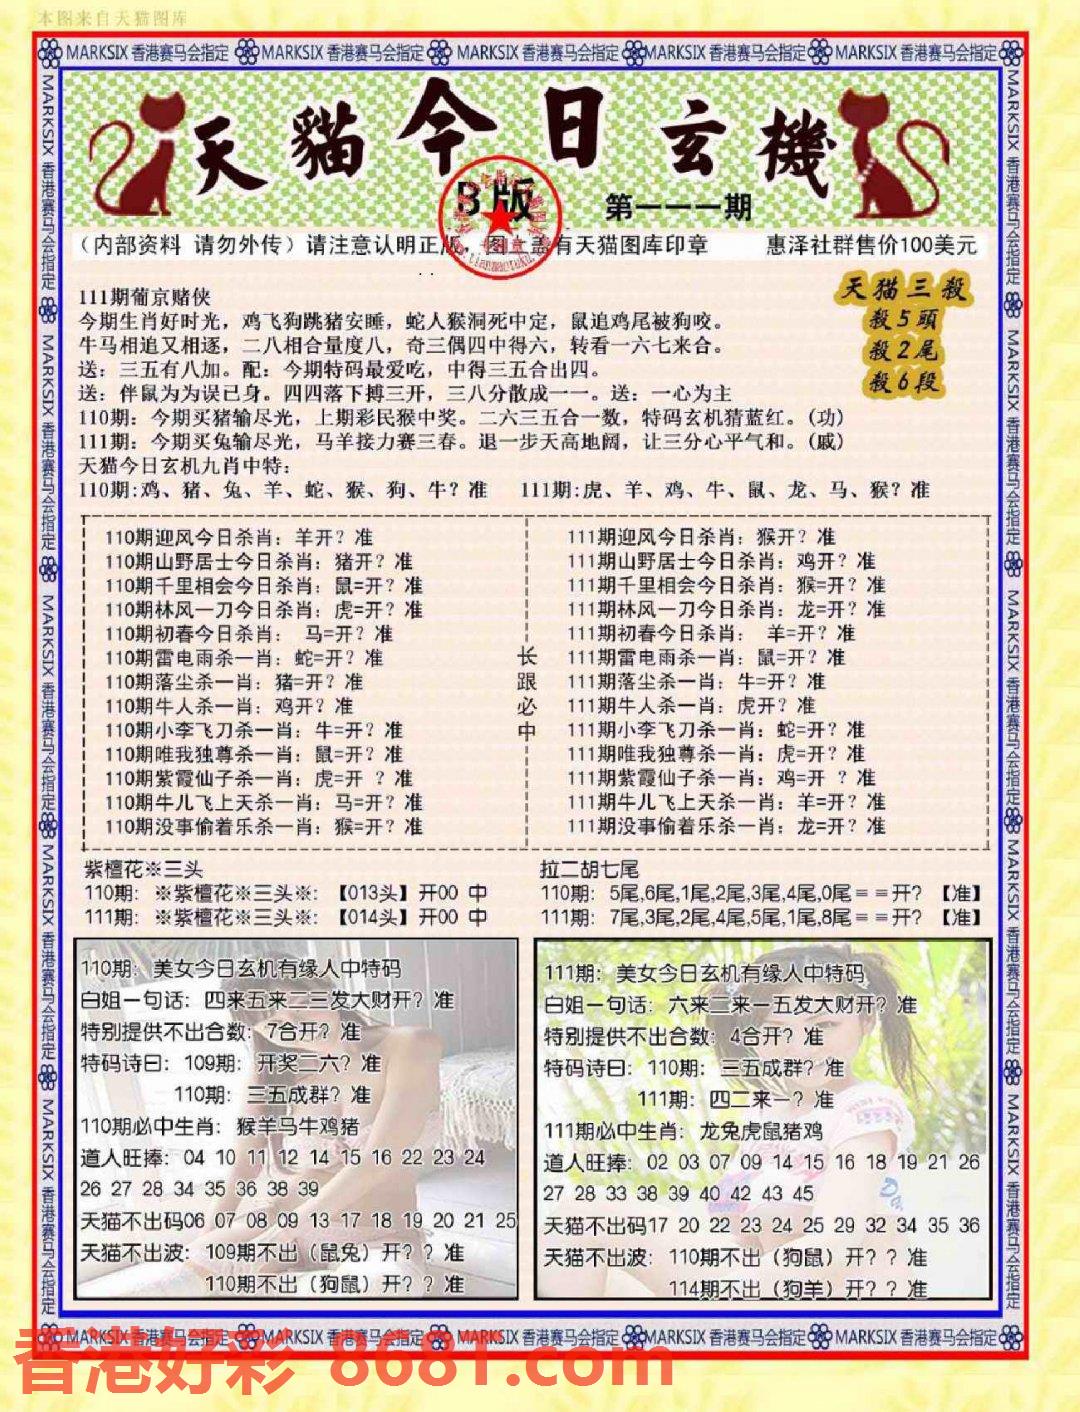 本图来自天猫图库
MARKSIX 香港赛马会指定 MARKSIX 香港赛马会指定 MARKSIX 香港赛马会指定 MARKSIX 香港赛马会指定 MARKSIX 香港赛马会指定
天貓今日玄機
B版
第一一一期
(内部资料 请勿外传) 请注意认明正版，图上盖有天猫图库印章 惠泽社群售价100美元
天猫三殺
殺5頭
殺2尾
殺6段
111期葡京赌侠
今期生肖好时光，鸡飞狗跳猪安睡，蛇人猴洞死中定，鼠追鸡尾被狗咬。
牛马相追又相逐，二八相合量度八，奇三偶四中得六，转看一六七来合。
送：三五有八加。配：今期特码最爱吃，中得三五合出四。
送：伴鼠为为误已身。四四落下搏三开，三八分散成一一。送：一心为主
110期：今期买猪输尽光，上期彩民猴中奖。二六三五合一数，特码玄机猜蓝红。(功)
111期：今期买兔输尽光，马羊接力赛三春。退一步天高地阔，让三分心平气和。(戚)
天猫今日玄机九肖中特：
110期:鸡、猪、兔、羊、蛇、猴、狗、牛？准 111期:虎、羊、鸡、牛、鼠、龙、马、猴？准
110期迎风今日杀肖：羊开？准
110期山野居士今日杀肖：猪开？准
110期千里相会今日杀肖：鼠=开？准
110期林风一刀今日杀肖：虎=开？准
110期初春今日杀肖： 马=开？准
110期雷电雨杀一肖：蛇=开？准
110期落尘杀一肖：猪=开？准
110期牛人杀一肖：鸡开？准
110期小李飞刀杀一肖：牛=开？准
110期唯我独尊杀一肖：鼠=开？准
110期紫霞仙子杀一肖：虎=开 ？准
110期牛儿飞上天杀一肖：马=开？准
110期没事偷着乐杀一肖：猴=开？准
长
跟
必
中
111期迎风今日杀肖：猴开？准
111期山野居士今日杀肖：鸡开？准
111期千里相会今日杀肖：猴=开？准
111期林风一刀今日杀肖：龙=开？准
111期初春今日杀肖： 羊=开？准
111期雷电雨杀一肖：鼠=开？准
111期落尘杀一肖：牛=开？准
111期牛人杀一肖：虎开？准
111期小李飞刀杀一肖：蛇=开？准
111期唯我独尊杀一肖：虎=开？准
111期紫霞仙子杀一肖：鸡=开 ？准
111期牛儿飞上天杀一肖：羊=开？准
111期没事偷着乐杀一肖：龙=开？准
紫檀花※三头
110期：※紫檀花※三头※:【013头】开00 中
111期：※紫檀花※三头※:【014头】开00 中
拉二胡七尾
110期：5尾,6尾,1尾,2尾,3尾,4尾,0尾＝＝开？【准】
111期：7尾,3尾,2尾,4尾,5尾,1尾,8尾＝＝开？【准】
110期：美女今日玄机有缘人中特码
白姐一句话：四来五来二三发大财开？准
特别提供不出合数：7合开？准
特码诗曰：109期：开奖二六？准
110期：三五成群？准
110期必中生肖：猴羊马牛鸡猪
道人旺捧：04 10 11 12 14 15 16 22 23 24
26 27 28 34 35 36 38 39
天猫不出码06 07 08 09 13 17 18 19 20 21 25
天猫不出波：109期不出（鼠兔）开？？准
110期不出（狗鼠）开？？准
111期：美女今日玄机有缘人中特码
白姐一句话：六来二来一五发大财开？准
特别提供不出合数：4合开？准
特码诗曰：110期：三五成群？准
111期：四二来一？准
111期必中生肖：龙兔虎鼠猪鸡
道人旺捧：02 03 07 09 14 15 16 18 19 21 26
27 28 33 38 39 40 42 43 45
天猫不出码17 20 22 23 24 25 29 32 34 35 36
天猫不出波：110期不出（狗鼠）开？？准
114期不出（狗羊）开？？准
MARKSIX 香港赛马会指定 MARKSIX 香港赛马会指定 MARKSIX 香港赛马会指定 MARKSIX 香港赛马会指定 MARKSIX 香港赛马会指定
香港好彩 8681.com